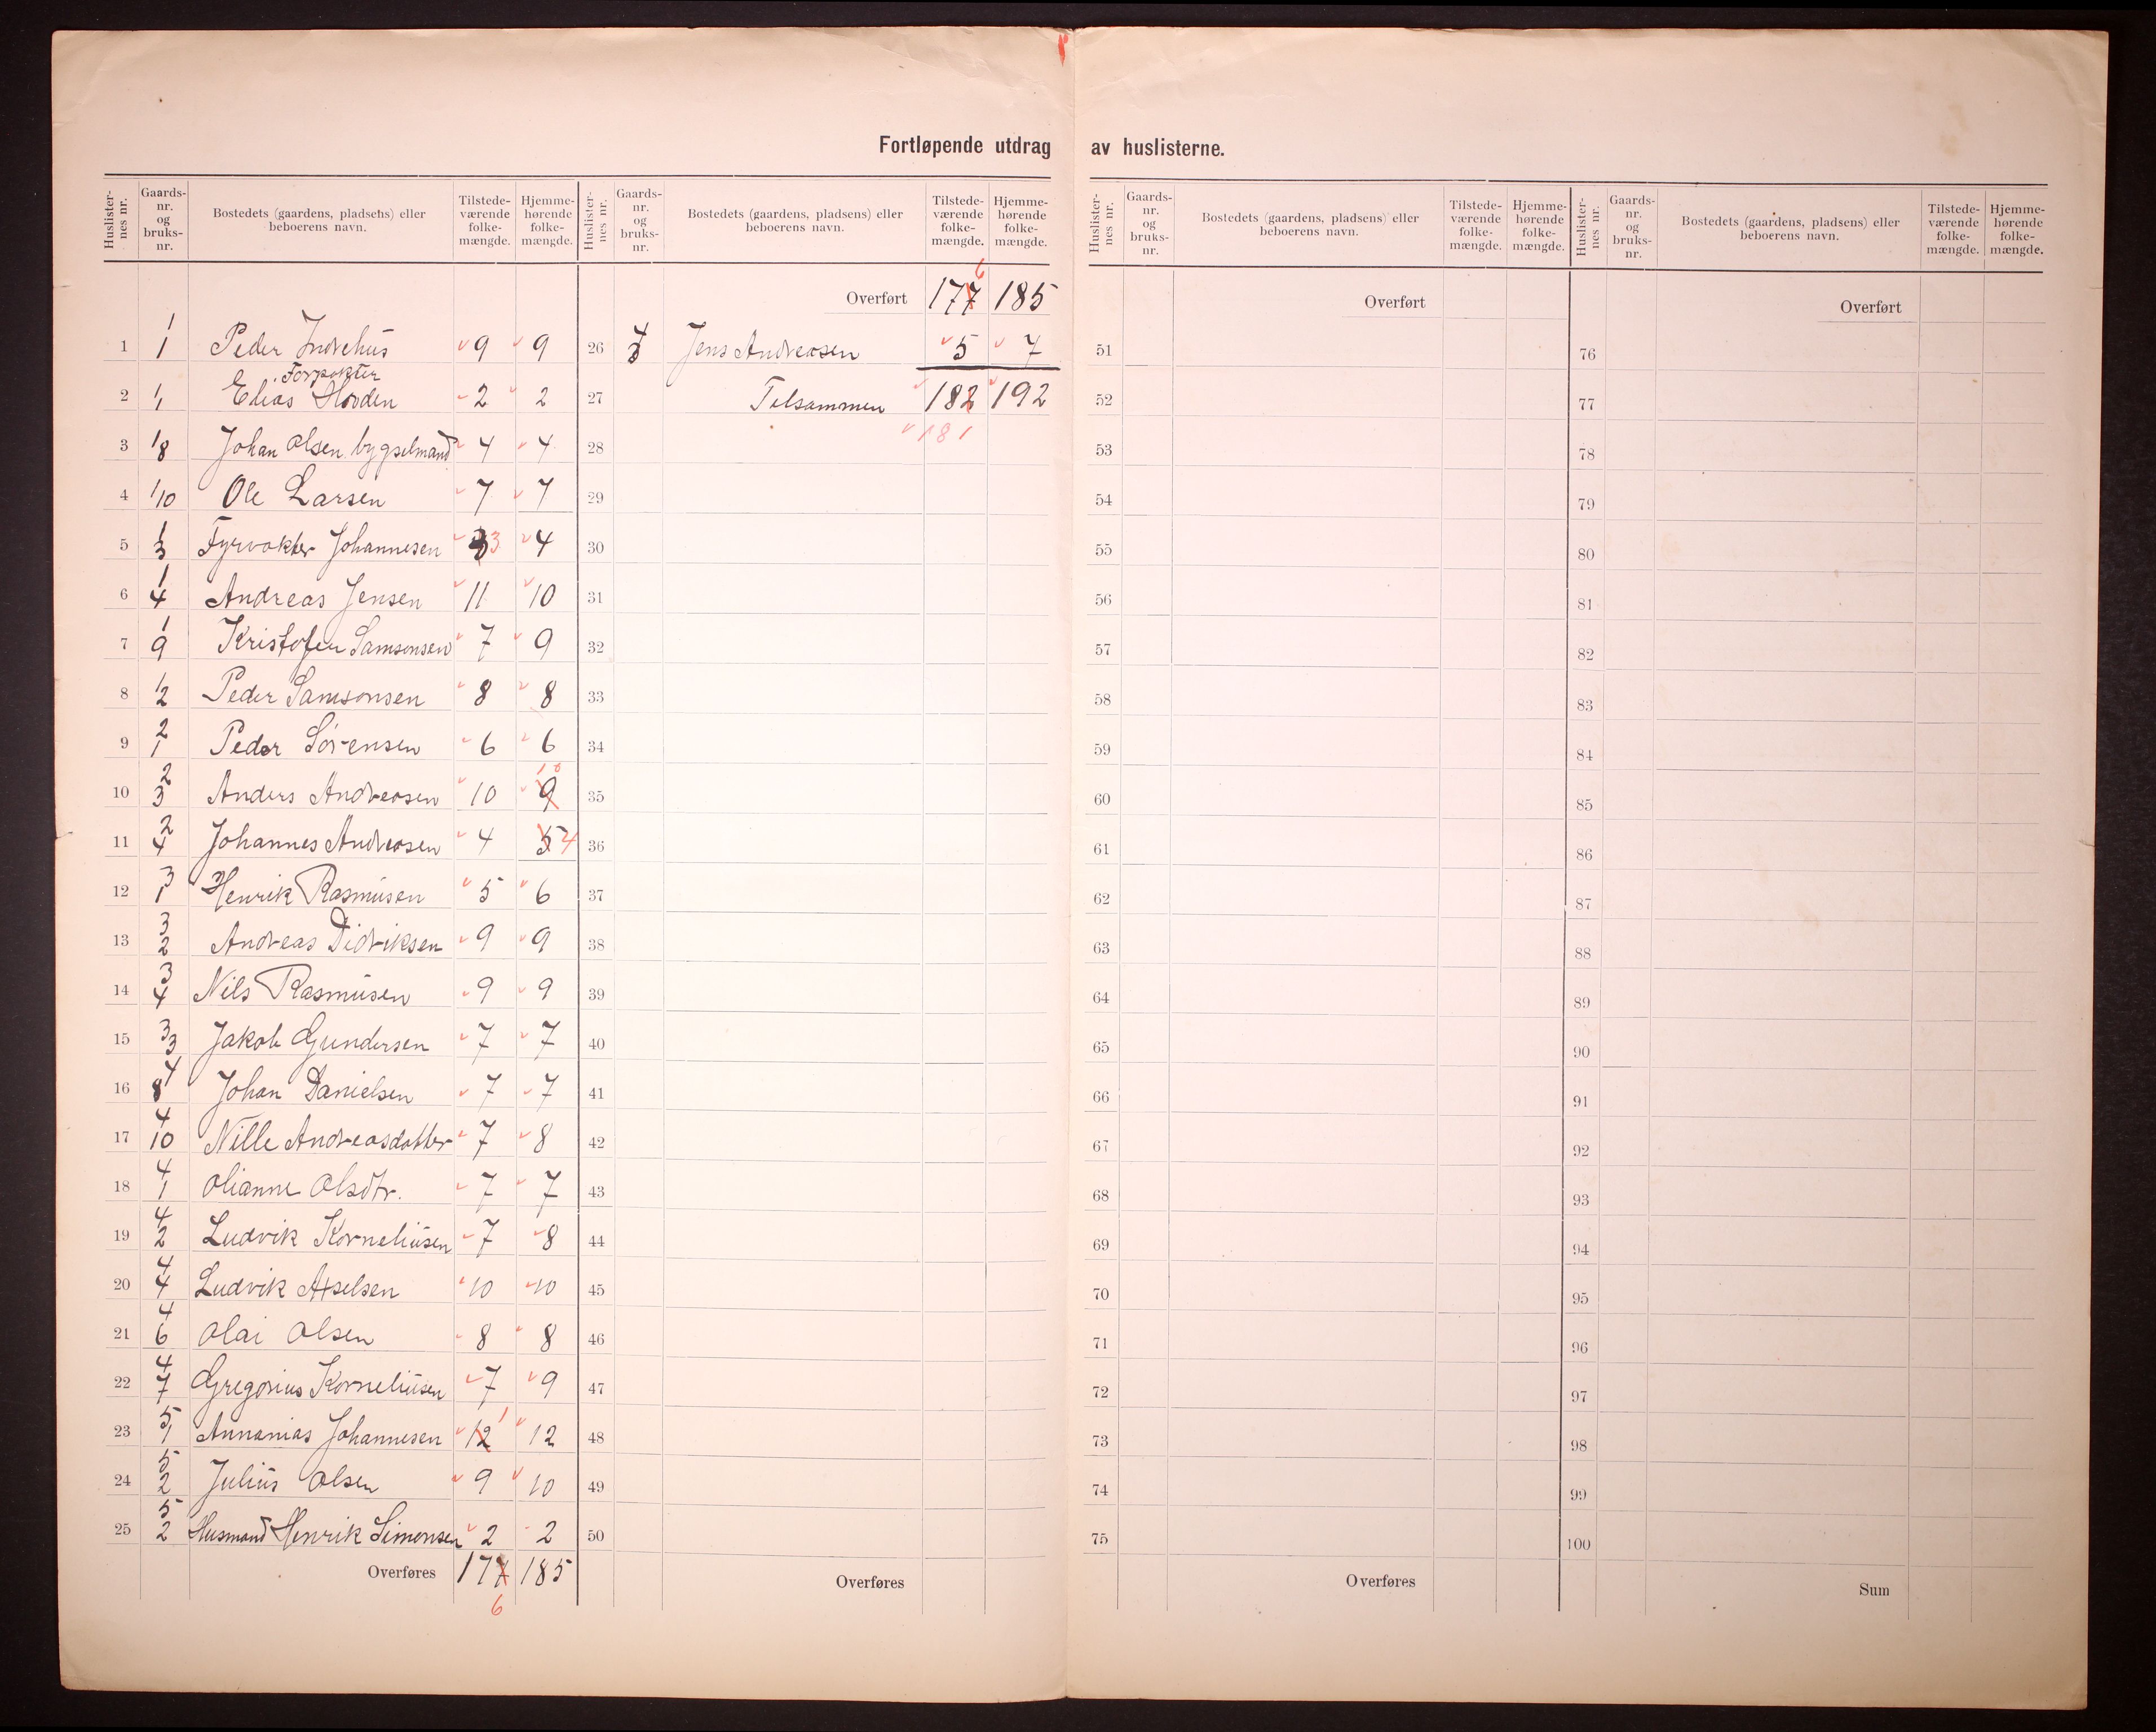 Fortløpende utdrag av huslisterne.
Huslister-nes nr. Gaards-nr. og bruks-nr. Bostedets (gaardens, pladsens) eller beboerens navn. Tilstede-værende folke-mængde. Hjemme-hørende folke-mængde.
Huslister-nes nr. Gaards-nr. og bruks-nr. Bostedets (gaardens, pladsens) eller beboerens navn. Tilstede-værende folke-mængde. Hjemme-hørende folke-mængde.
Huslister-nes nr. Gaards-nr. og bruks-nr. Bostedets (gaardens, pladsens) eller beboerens navn. Tilstede-værende folke-mængde. Hjemme-hørende folke-mængde.
Huslister-nes nr. Gaards-nr. og bruks-nr. Bostedets (gaardens, pladsens) eller beboerens navn. Tilstede-værende folke-mængde. Hjemme-hørende folke-mængde.
1 1/1 Peder Indrehus 9 9
Forpakter
2 1/1 Elias Hovden 2 2
3 1/8 Johan Olsen bygselmand 4 4
4 1/10 Ole Larsen 7 7
5 1/3 Fyrvokter Johannesen 3 4
6 1/4 Andreas Jensen 11 10
7 1/9 Kristofer Samsonsen 7 9
8 1/2 Peder Samsonsen 8 8
9 2/1 Peder Sørensen 6 6
10 2/3 Anders Andreasen 10 9 10
11 2/4 Johannes Andreasen 4 5 4
12 3/1 Henrik Rasmusen 5 6
13 3/2 Andreas Didriksen 9 9
14 3/4 Nils Rasmusen 9 9
15 3/3 Jakob Gundersen 7 7
16 4/8 Johan Danielsen 7 7
17 4/10 Nille Andreasdatter 7 8
18 4/1 Olianne Olsdtr. 7 7
19 4/2 Ludvik Korneliusen 7 8
20 4/4 Ludvik Axselsen 10 10
21 4/6 Olai Olsen 8 8
22 4/7 Gregorius Korneliusen 7 9
23 5/1 Annanias Johannesen 12 1 12
24 5/2 Julius Olsen 9 10
25 5/2 Husmand Henrik Simonsen 2 2
Overføres 177 185
6
6
Overført 177 185
26 Jens Andreasen 5 7
27 Tilsammen 182 192
28 181
29
30
31
32
33
34
35
36
37
38
39
40
41
42
43
44
45
46
47
48
49
50
Overføres
Overført
51
52
53
54
55
56
57
58
59
60
61
62
63
64
65
66
67
68
69
70
71
72
73
74
75
Overføres
Overført
76
77
78
79
80
81
82
83
84
85
86
87
88
89
90
91
92
93
94
95
96
97
98
99
100
Sum